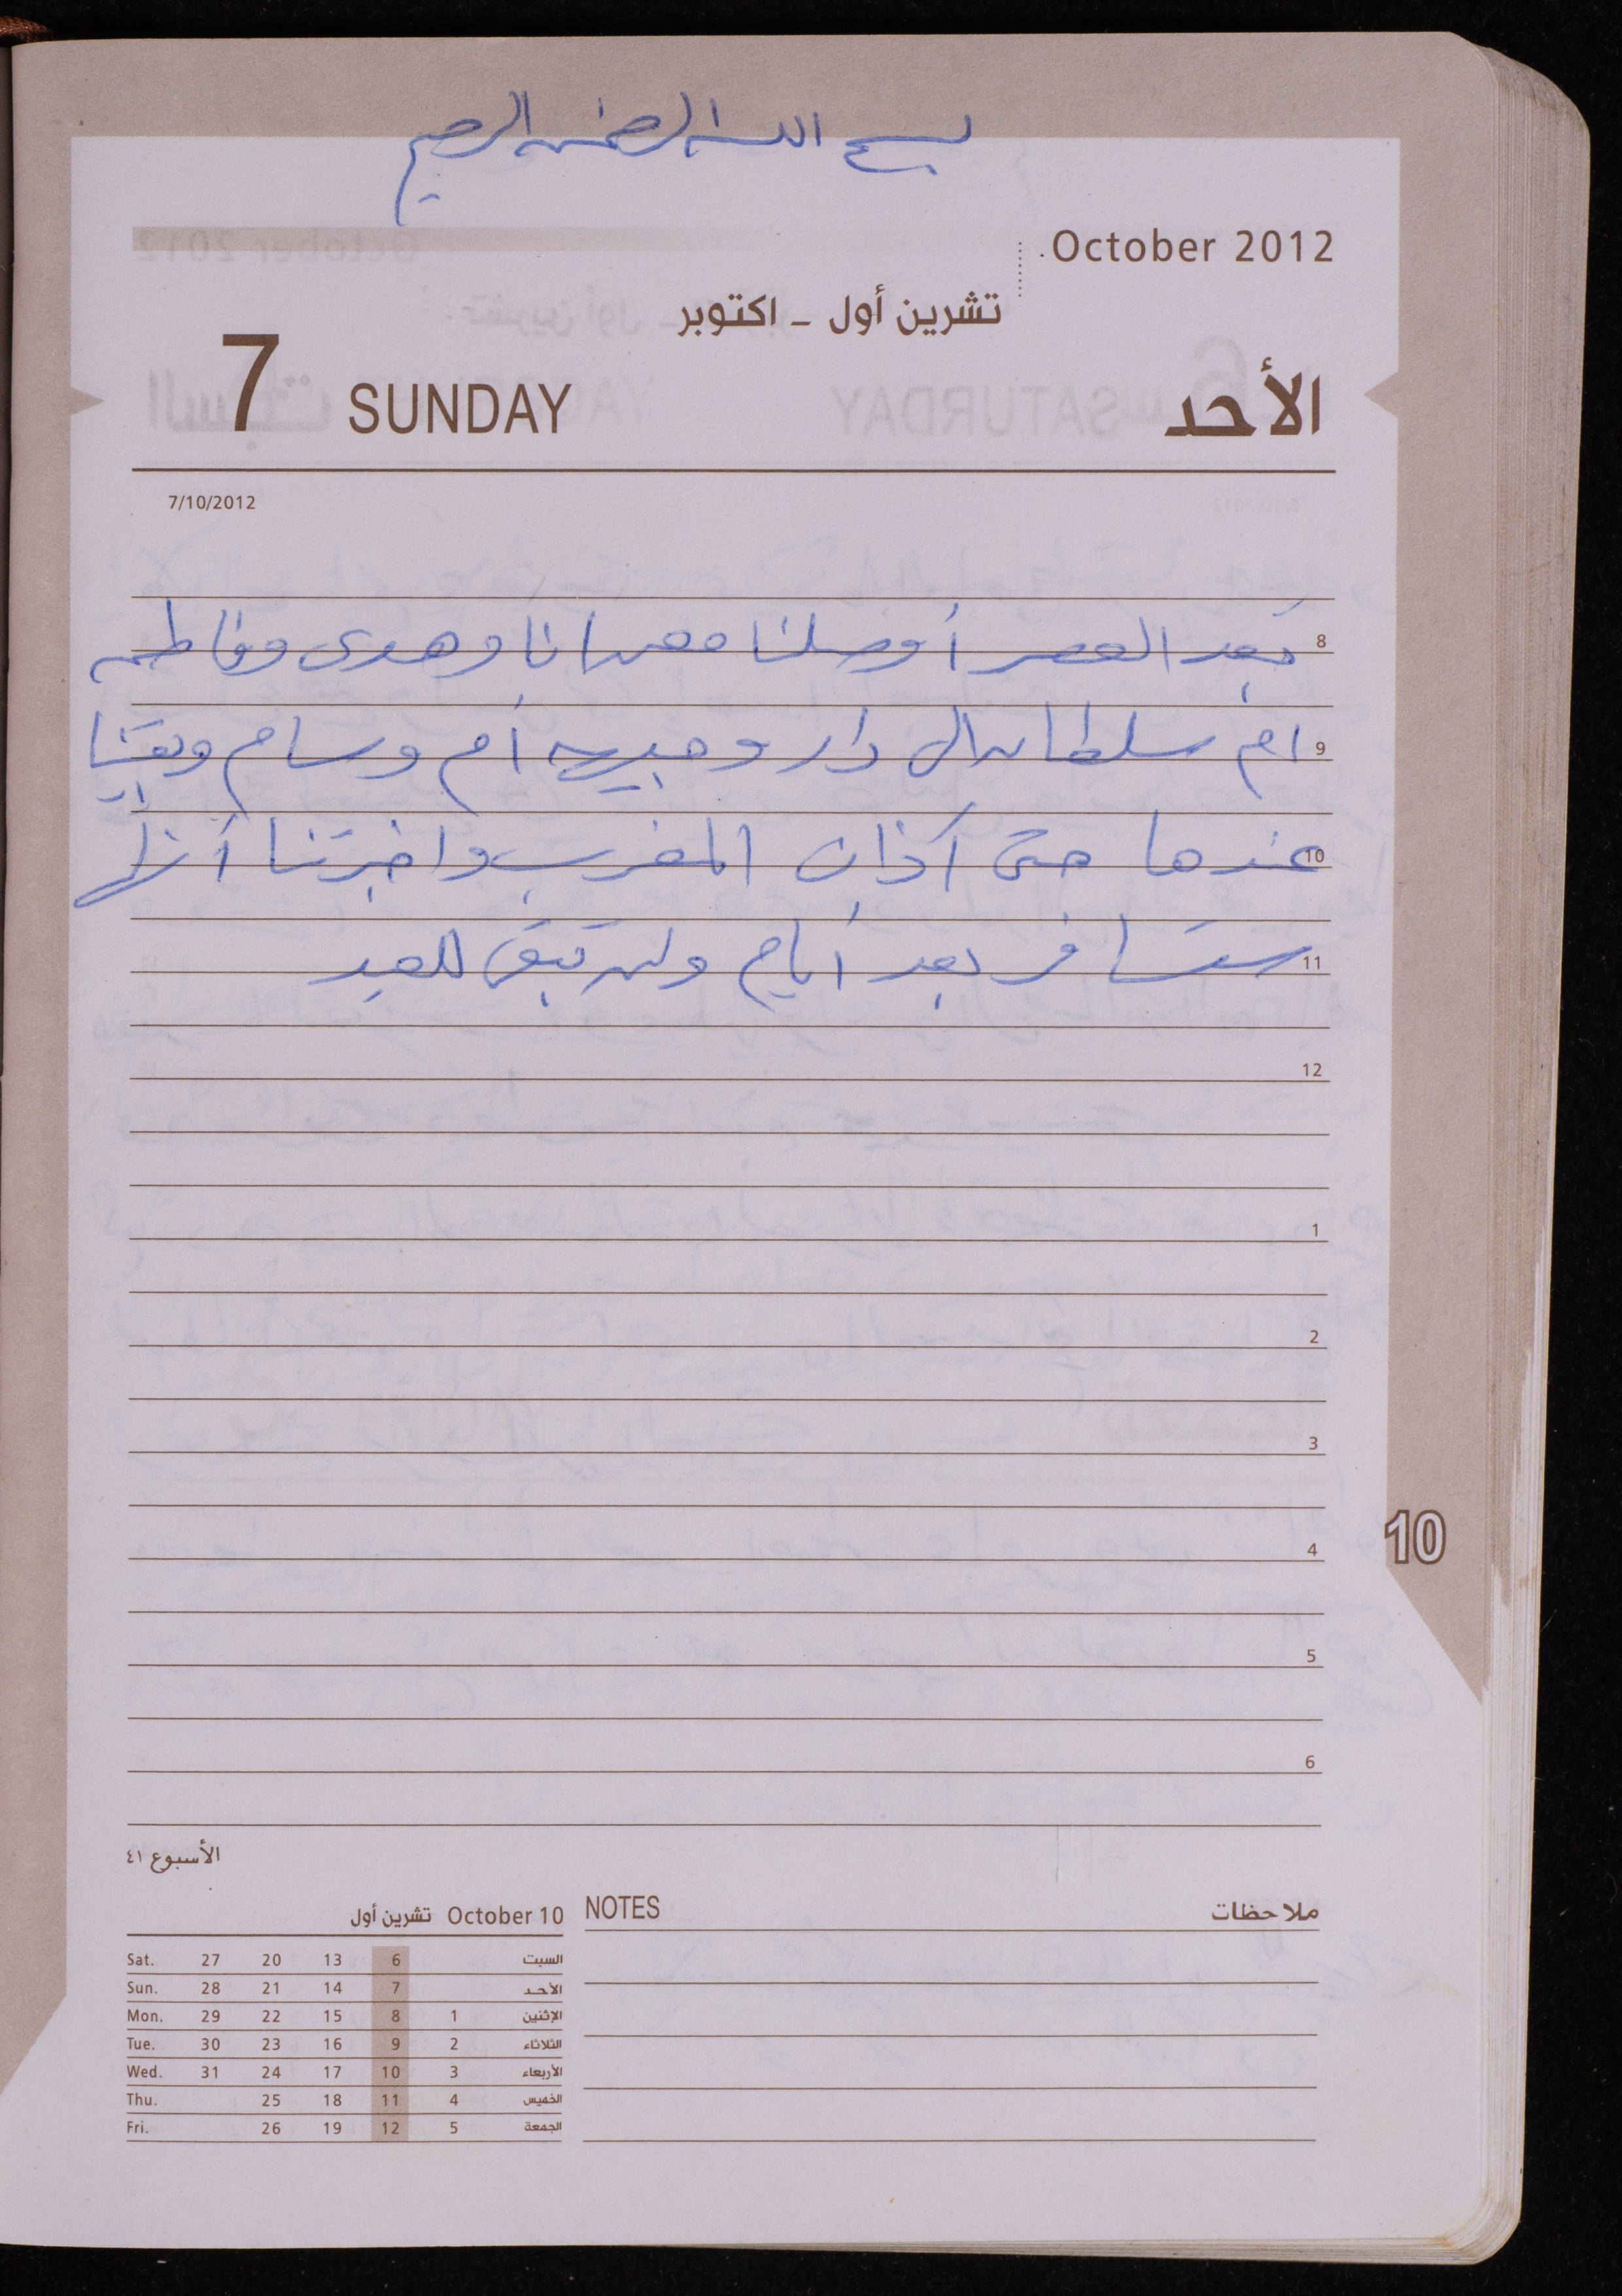 بسم الله الرحمن الرحيم
October 2012
تشرين أول - اكتوبر
7 SUNDAY الأحد
7/10/2012
8 بعد العصر أوصلنا معن انا وهدى وفاطمه
9 ام سلطان الى دار وجيهه أم وسام وبقينا
10 عندها حتى آذان المغرب واخبرتنا أنها
11 ستسافر بعد أيام ولن تبقى للعيد
12
1
2
3
4
10
5
6
الأسبوع ٤١
تشرين أول October 10
NOTES ملاحظات
Sat. 27 20 13 6 السبت
Sun. 28 21 14 7 الأحد
Mon. 29 22 15 8 1 الإثنين
Tue. 30 23 16 9 2 الثلاثاء
Wed. 31 24 17 10 3 الأربعاء
Thu. 25 18 11 4 الخميس
Fri. 26 19 12 5 الجمعة